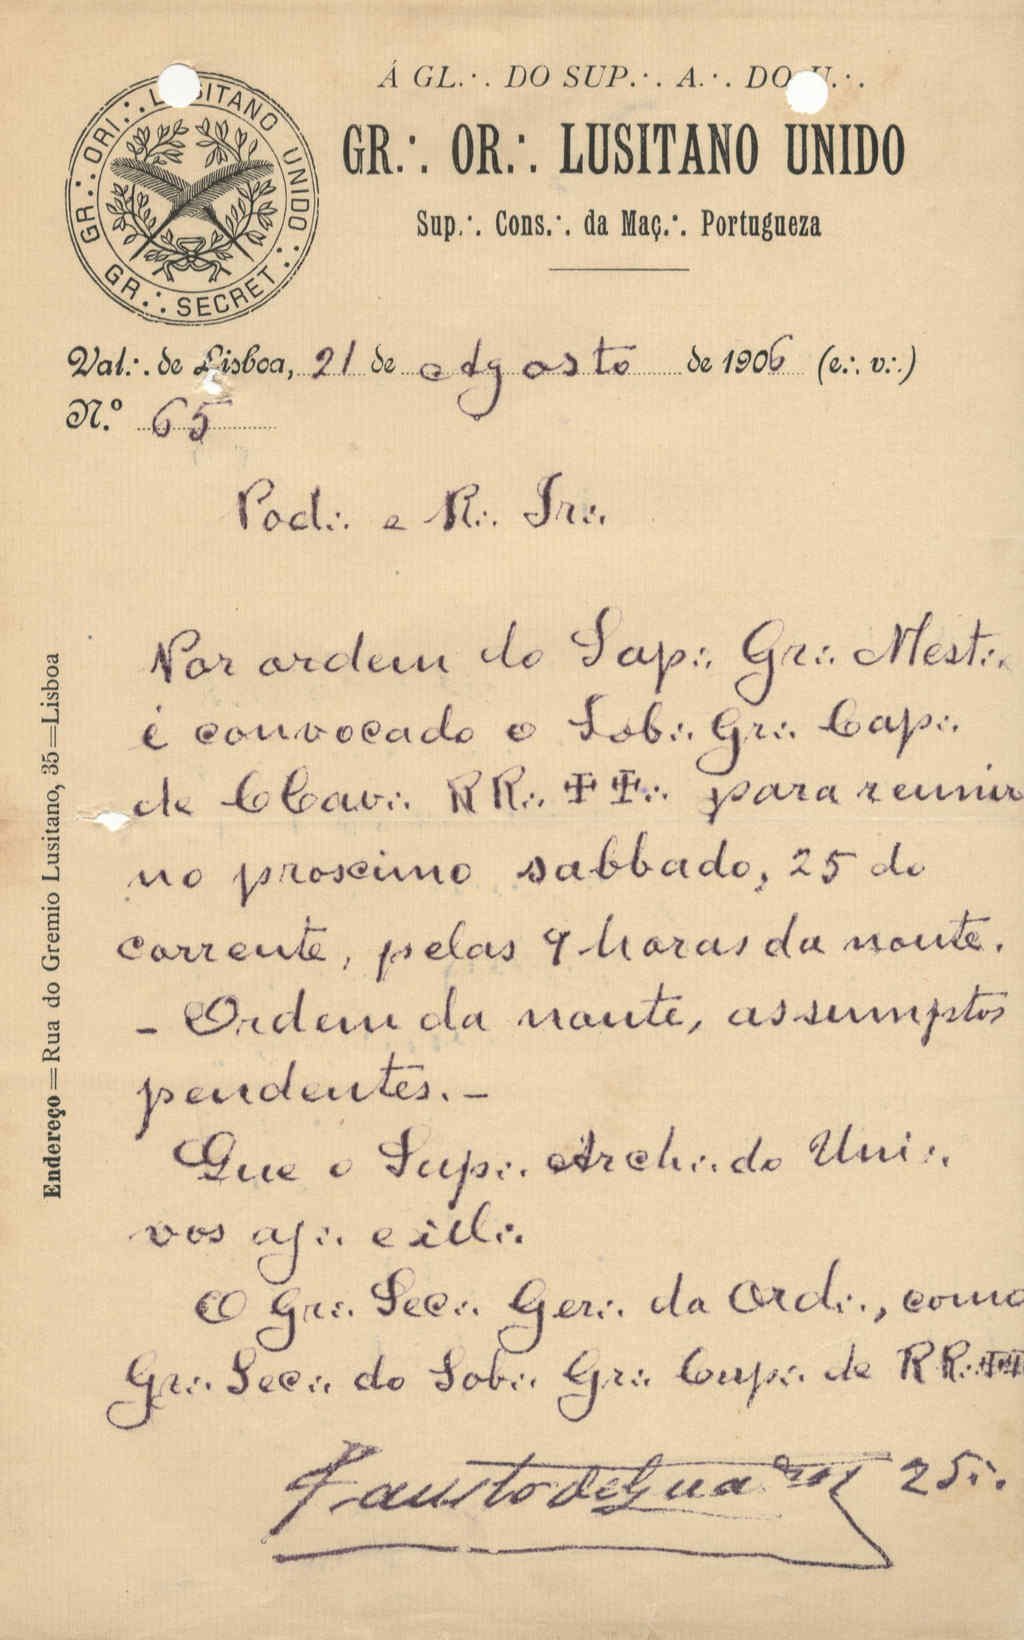 Á GL.·. DO SUP.·. A.·. DO U.·.
GR.·. ORI.·. LUSITANO UNIDO.·.
GR.·. SECRET.·.
GR.·. OR.·. LUSITANO UNIDO
Sup.·. Cons.·. da Maç.·. Portugueza
Val.·. de Lisboa, 21 de Agosto de 1906 (e.·. v.·.)
N.º 65
Pod.·. e R.·. Ir.·.
Por ordem do Sap.·. Gr.·. Mest.·.
é convocado o Sob.·. Gr.·. Cap.·.
de CCav.·. RR.·. ✠✠.·. para reunir
no proximo sabbado, 25 do
corrente, pelas 9 horas da noute.
- Ordem da noute, assumptos
pendentes. -
Que o Sup.·. Arch.·. do Uni.·.
vos aj.·. e ill.·.
O Gr.·. Sec.·. Ger.·. da Ord.·., como
Gr.·. Sec.·. do Sob.·. Gr.·. Cap.·. de RR.·. ✠✠
Fausto de Quadros 25.·.
Endereço=Rua do Gremio Lusitano, 35=Lisboa